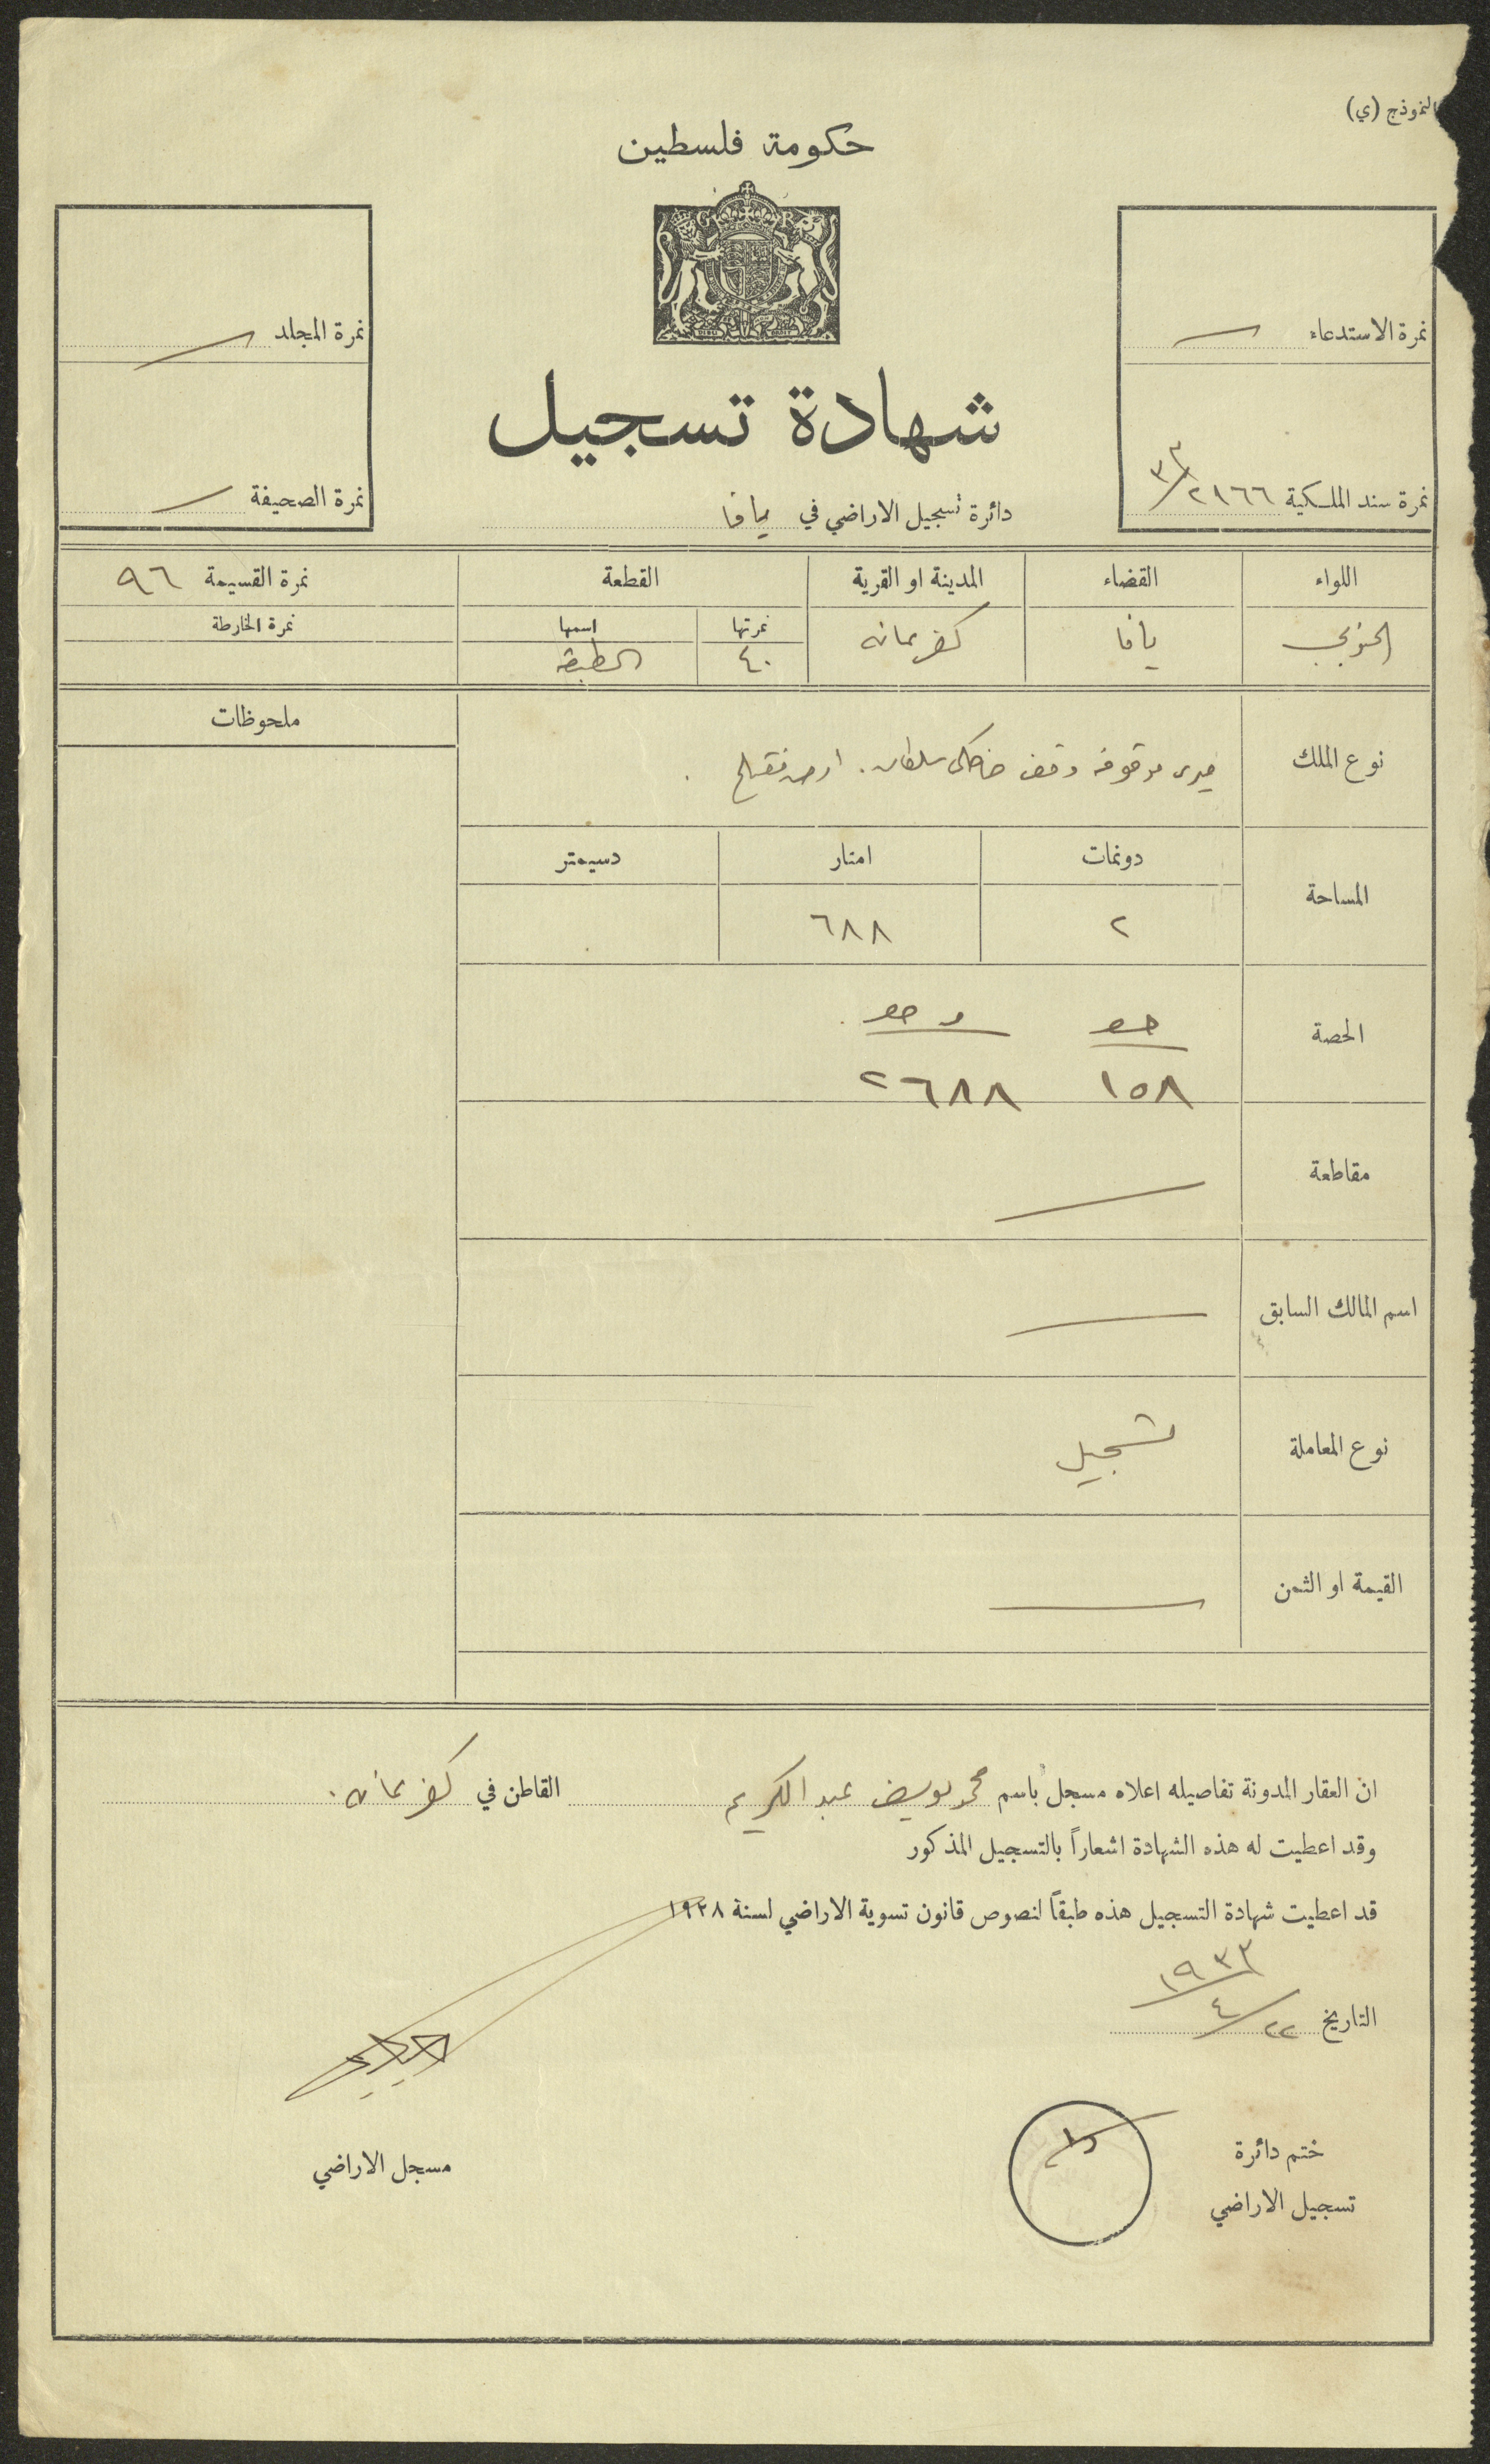 النموذج (ي)
حكومة فلسطين
G R
نمرة الاستدعاء
نمرة المجلد
شهادة تسجيل
نمرة سند الملكية ٢١٦٦/٣٣
نمرة الصحيفة
دائرة تسجيل الاراضي في يافا
اللواء القضاء المدينة او القرية القطعة نمرة القسيمة ٩٦
نمرتها اسمها نمرة الخارطة
الجنوبي يافا كفرعانه ٤٠ الطبقه
ملحوظات
نوع الملك ميري موقوفه وقف خاصكي سلطان . ارض تفتلح .
دونمات امتار دسيمتر
المساحة
٢ ٦٨٨
الحصة
١٥٨ ٢٦٨٨
مقاطعة
اسم المالك السابق
نوع المعاملة تسجيل
القيمة او الثمن
ان العقار المدونة تفاصيله اعلاه مسجل باسم محمد يوسف عبد الكريم القاطن في كفرعانه .
وقد اعطيت له هذه الشهادة اشعاراً بالتسجيل المذكور
قد اعطيت شهادة التسجيل هذه طبقاً لنصوص قانون تسوية الاراضي لسنة ١٩٢٨
١٩٣٣
التاريخ ٢٢/٤
ختم دائرة
تسجيل الاراضي
مسجل الاراضي